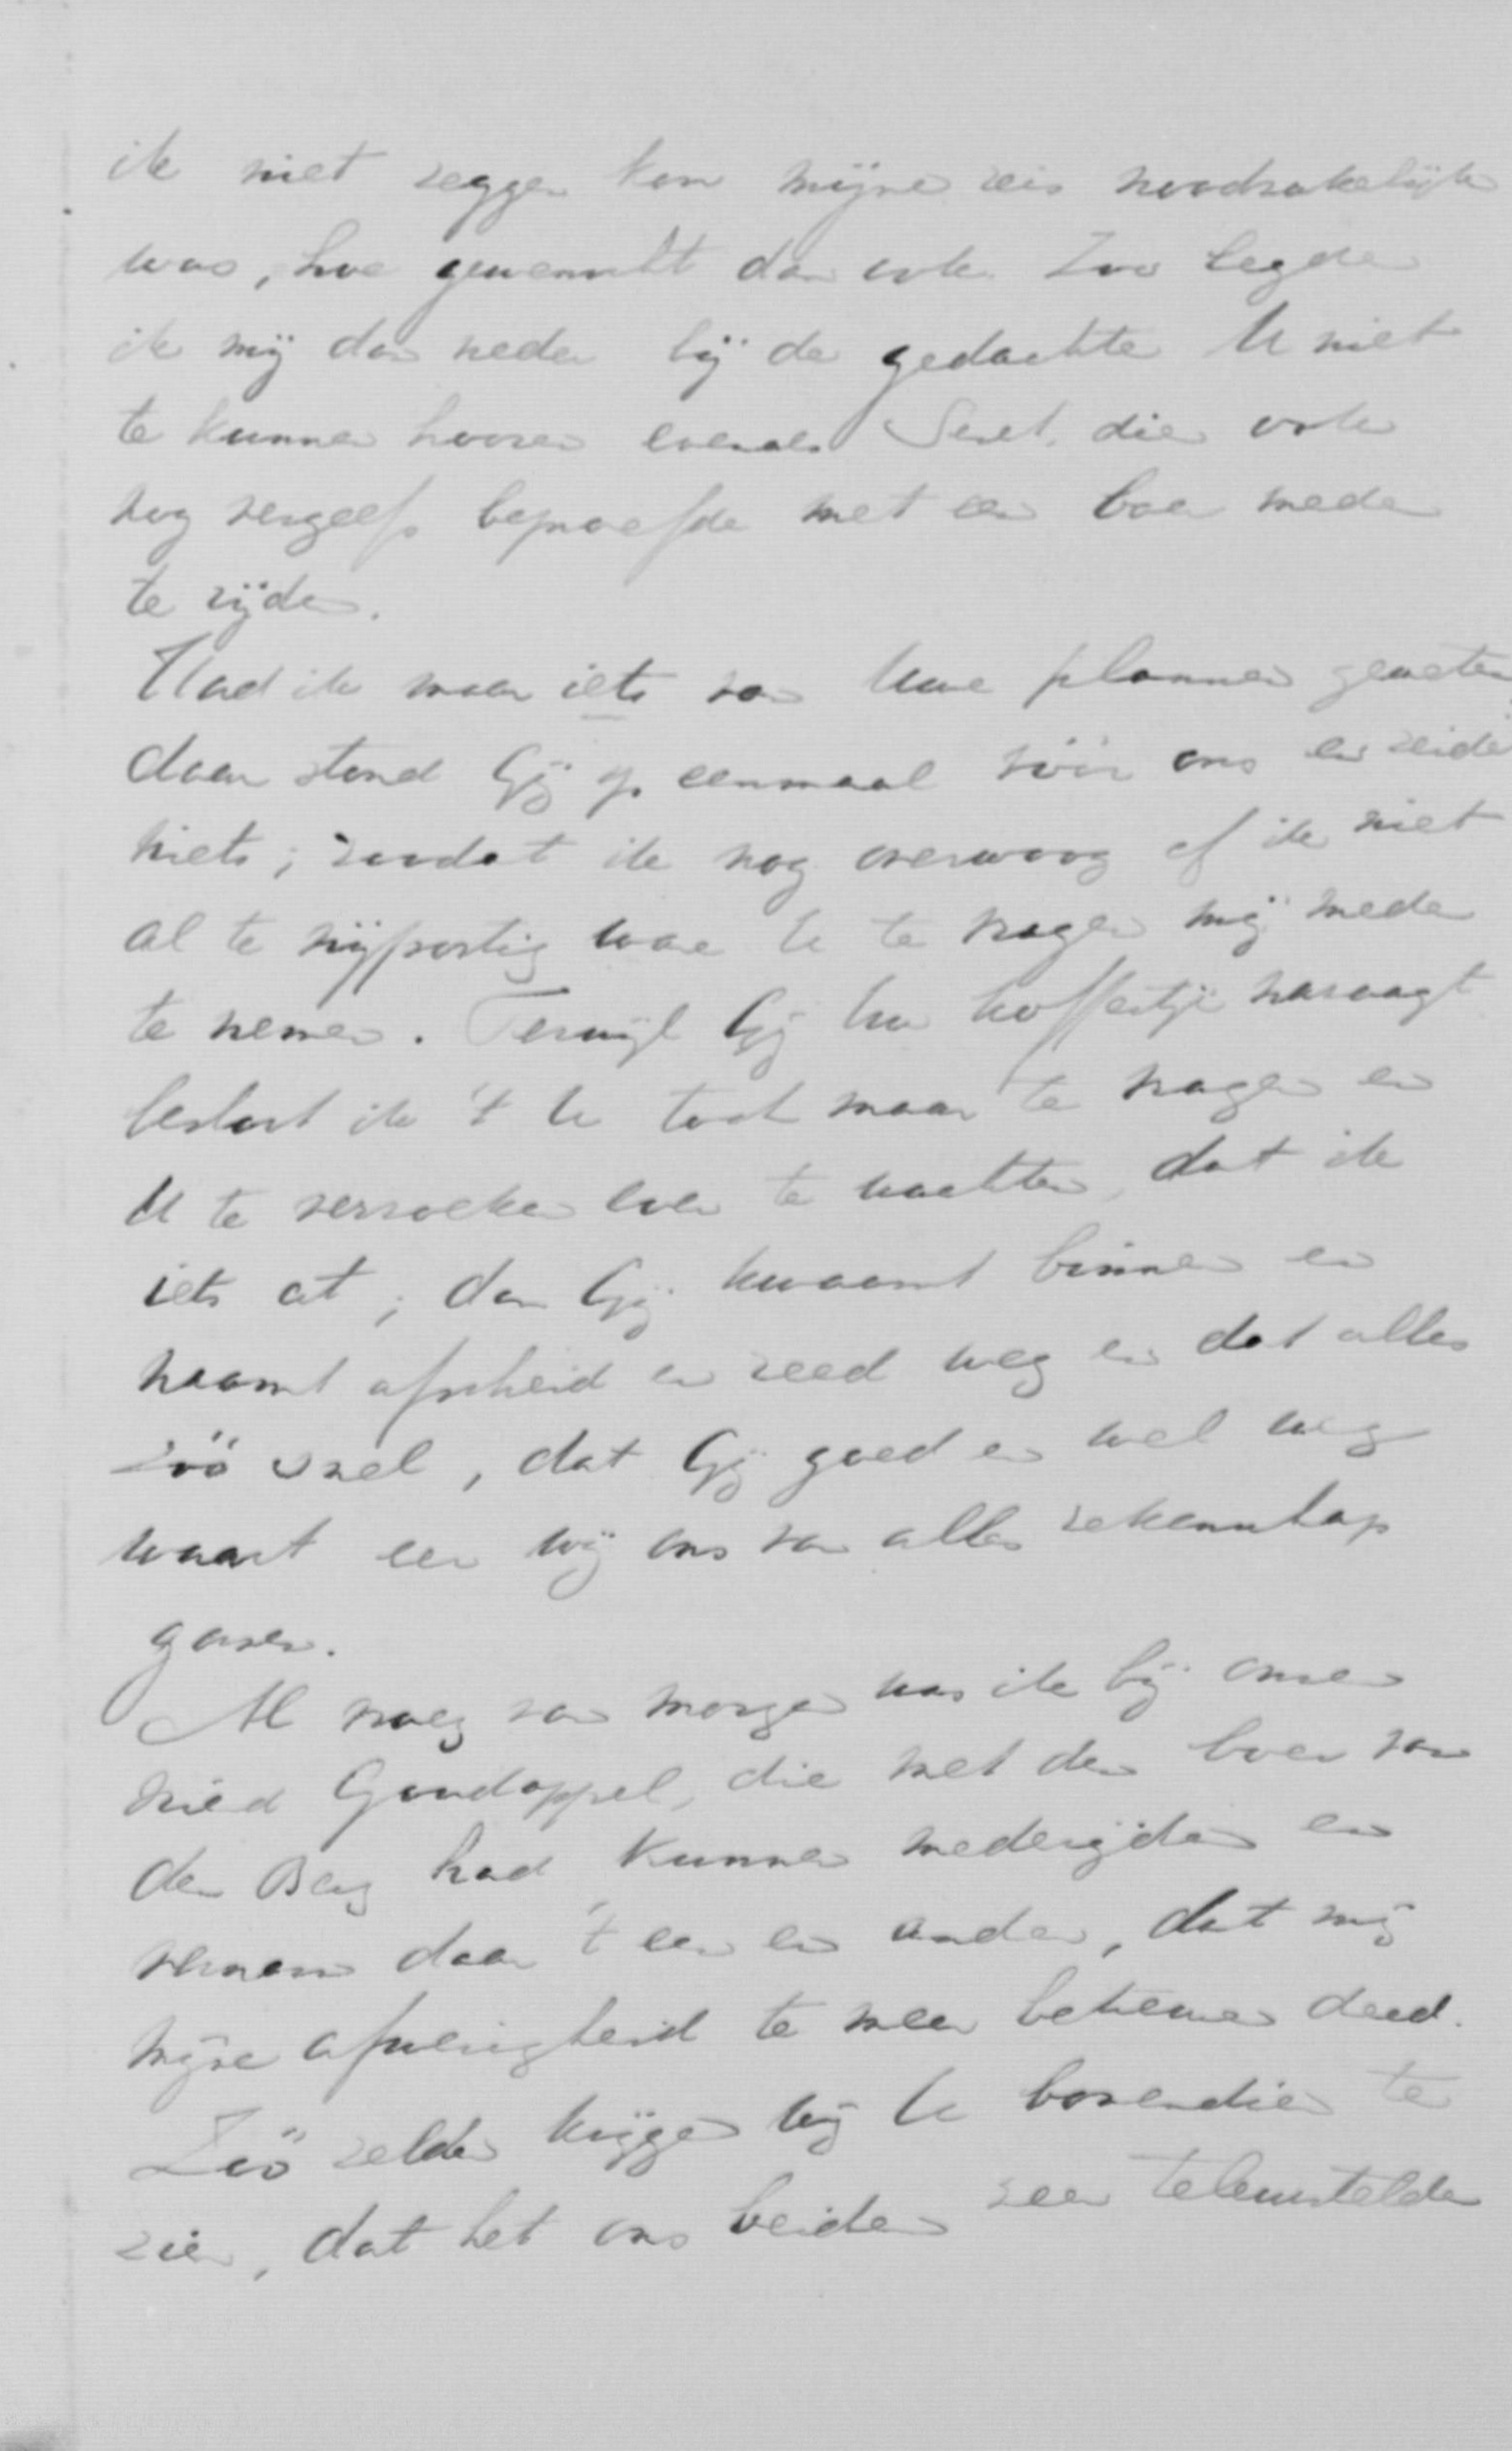 ik niet zeggen kon mijne reis noodzakelijk
was, hoe gewenscht dan ook. Zoo legde
ik mij dan neder bij de gedachte U niet
te kunnen hooren evenals die ook
nog vergeefs beproefde met een boer mede
te rijden.
Had ik maar iets van Uwe plannen geweten
daar stond Gij op eenmaal vóór ons en zeide
niets; zoodat ik nog overwoog of ik niet
al te vrijpostig ware U te vragen mij mede
te nemen. Terwijl Gij Uw koffertje navraagt
besluit ik 't U toch maar te vragen en
U te verzoeken even te wachten, dat ik
iets at; dan Gij kwaamt binnen en
naamt afscheid en reed weg en dat alles
zóó snel, dat Gij goed en wel weg
waart eer wij ons van alles rekenschap
gaven.
Al vroeg van morgen was ik bij onzen
vriend Goudappel, die met den boer van
den Berg had kunnen mederijden en
vernam daar 't een en ander, dat mij
mijne afwezigheid te meer betreuren deed.
Zóó zelden krijgen wij U bovendien te
zien, dat het ons beiden zeer teleurstelde